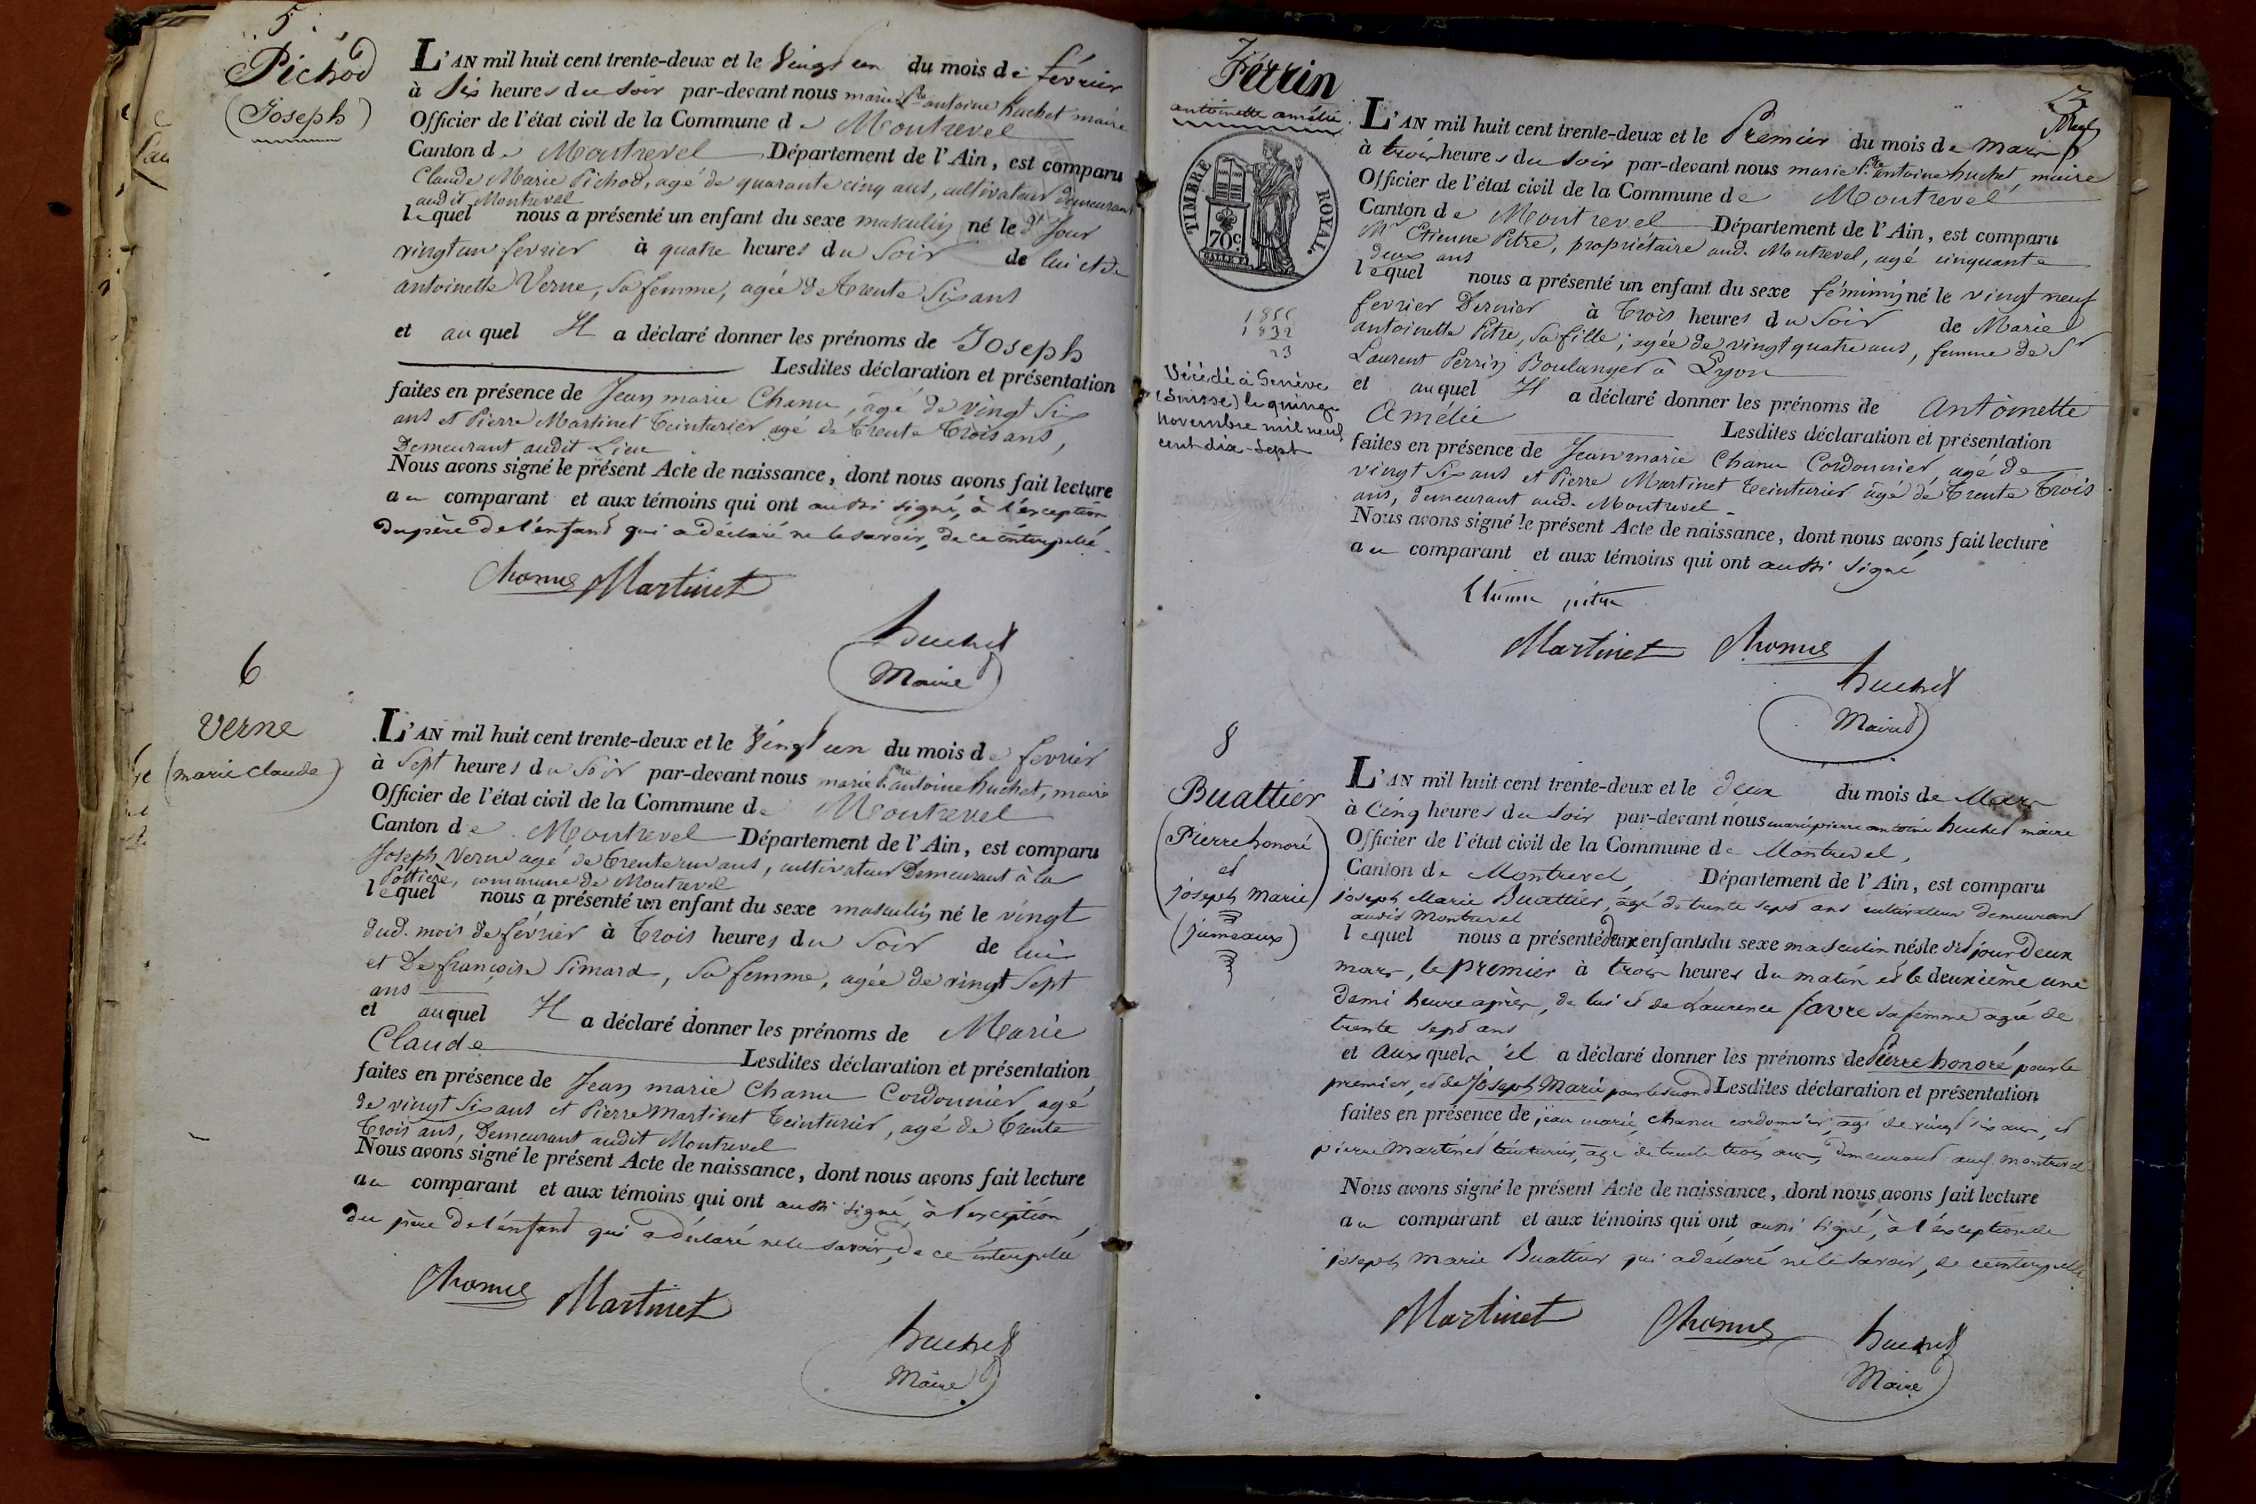 5
Pichod
(Joseph)
L'AN mil huit cent trente-deux et le Vingt un du mois de février
à Six heures du Soir par-devant nous marie Pre antoine huchet maire
Officier de l'état civil de la Commune de Montrevel
Canton de Montrevel Département de l'Ain, est comparu
Claude Marie Pichod, agé de quarante cinq ans, cultivateur demeurant
audit Montrevel
lequel nous a présenté un enfant du sexe masculin né le dt Jour
vingt un fevrier à quatre heures du Soir de lui et de
antoinette Verne, sa femme, agée de Trente Six ans
et auquel Il a déclaré donner les prénoms de Joseph
Lesdites déclaration et présentation
faites en présence de Jean marie Chanu, âgé de vingt Six
ans et Pierre Martinet Teinturier agé de trente Trois ans,
Demeurant audit Lieu
Nous avons signé le présent Acte de naissance, dont nous avons fait lecture
au comparant et aux témoins qui ont aussi signé, à l'exception
du père de l'enfant qui a déclaré ne le savoir, de ce interpellé.
Chanu Martinet
huchet
Maire
6
Verne
(marie claude)
L'AN mil huit cent trente-deux et le Vingt un du mois de fevrier
à Sept heures du Soir par-devant nous marie Pre antoine huchet, maire
Officier de l'état civil de la Commune de Montrevel
Canton de Montrevel Département de l'Ain, est comparu
Joseph Verne agé de trente un ans, cultivateur Demeurant à la
Pottière, commune de Montrevel
lequel nous a présenté un enfant du sexe masculin né le vingt
dud. mois de février à Trois heures du Soir de lui
et De françoise Simard, Sa femme, agée de vingt Sept
ans
et auquel Il a déclaré donner les prénoms de Marie
Claude
Lesdites déclaration et présentation
faites en présence de Jean marie Chanu Cordonnier, agé
de vingt Six ans et Pierre Martinet Teinturier, agé de Trente
Trois ans, Demeurant audit Montrevel
Nous avons signé le présent Acte de naissance, dont nous avons fait lecture
au comparant et aux témoins qui ont aussi signé à l'exception
du père de l'enfant qui a déclaré ne le savoir, de ce interpellé
Chanu Martinet
huchet
Maire
7
Perrin
antoinette amélie
TIMBRE ROYAL.
70c
1855
1832
23
Décédé à Genève
(Suisse) le quinze
novembre mil neuf
cent dix-sept
L'AN mil huit cent trente-deux et le Premier du mois de Mars
à trois heures du Soir par-devant nous marie Pre antoine huchet, maire
Officier de l'état civil de la Commune de Montrevel
Canton de Montrevel Département de l'Ain, est comparu
Mr Etienne Pitre, propriétaire aud. Montrevel, agé cinquante
deux ans
lequel nous a présenté un enfant du sexe féminin né le vingt neuf
fevrier Dernier à Trois heures du Soir de Marie
antoinette Pitre, Sa fille, agée de vingt quatre ans, femme de Sr
Laurent Perrin Boulanger à Lyon
et auquel Il a déclaré donner les prénoms de Antoinette
Amélie
Lesdites déclaration et présentation
faites en présence de Jean marie Chanu Cordonnier, agé de
vingt Six ans et Pierre Martinet Teinturier agé de Trente Trois
ans, demeurant aud. Montrevel
Nous avons signé le présent Acte de naissance, dont nous avons fait lecture
au comparant et aux témoins qui ont aussi signé
Etienne pitre
Martinet Chanu
huchet
Maire
8
Buattier
(Pierre honoré
et
joseph Marie)
(jumeaux)
L'AN mil huit cent trente-deux et le deux du mois de Mars
à Cinq heures du Soir par-devant nous marie pierre antoine huchet maire
Officier de l'état civil de la Commune de Montrevel,
Canton de Montrevel Département de l'Ain, est comparu
joseph Marie Buattier, agé de trente sept ans cultivateur demeurant
audit Montrevel
lequel nous a présenté deux enfants du sexe masculin nés le dit jour deux
mars, le premier à trois heures du matin et le deuxième une
demi heure après, de lui et de Laurence favre sa femme agée de
trente sept ans
et auxquels il a déclaré donner les prénoms de Pierre honoré pour le
premier, et de Joseph Marie pour le second Lesdites déclaration et présentation
faites en présence de jean marie chanu cordonnier, agé de vingt six ans, et
pierre Martinet teinturier, agé de trente trois ans, demeurant aud. montrevel
Nous avons signé le présent Acte de naissance, dont nous avons fait lecture
au comparant et aux témoins qui ont aussi signé, à l'exception de
joseph Marie Buattier qui a déclaré ne le savoir, de ce interpellé
Martinet Chanu
huchet
Maire